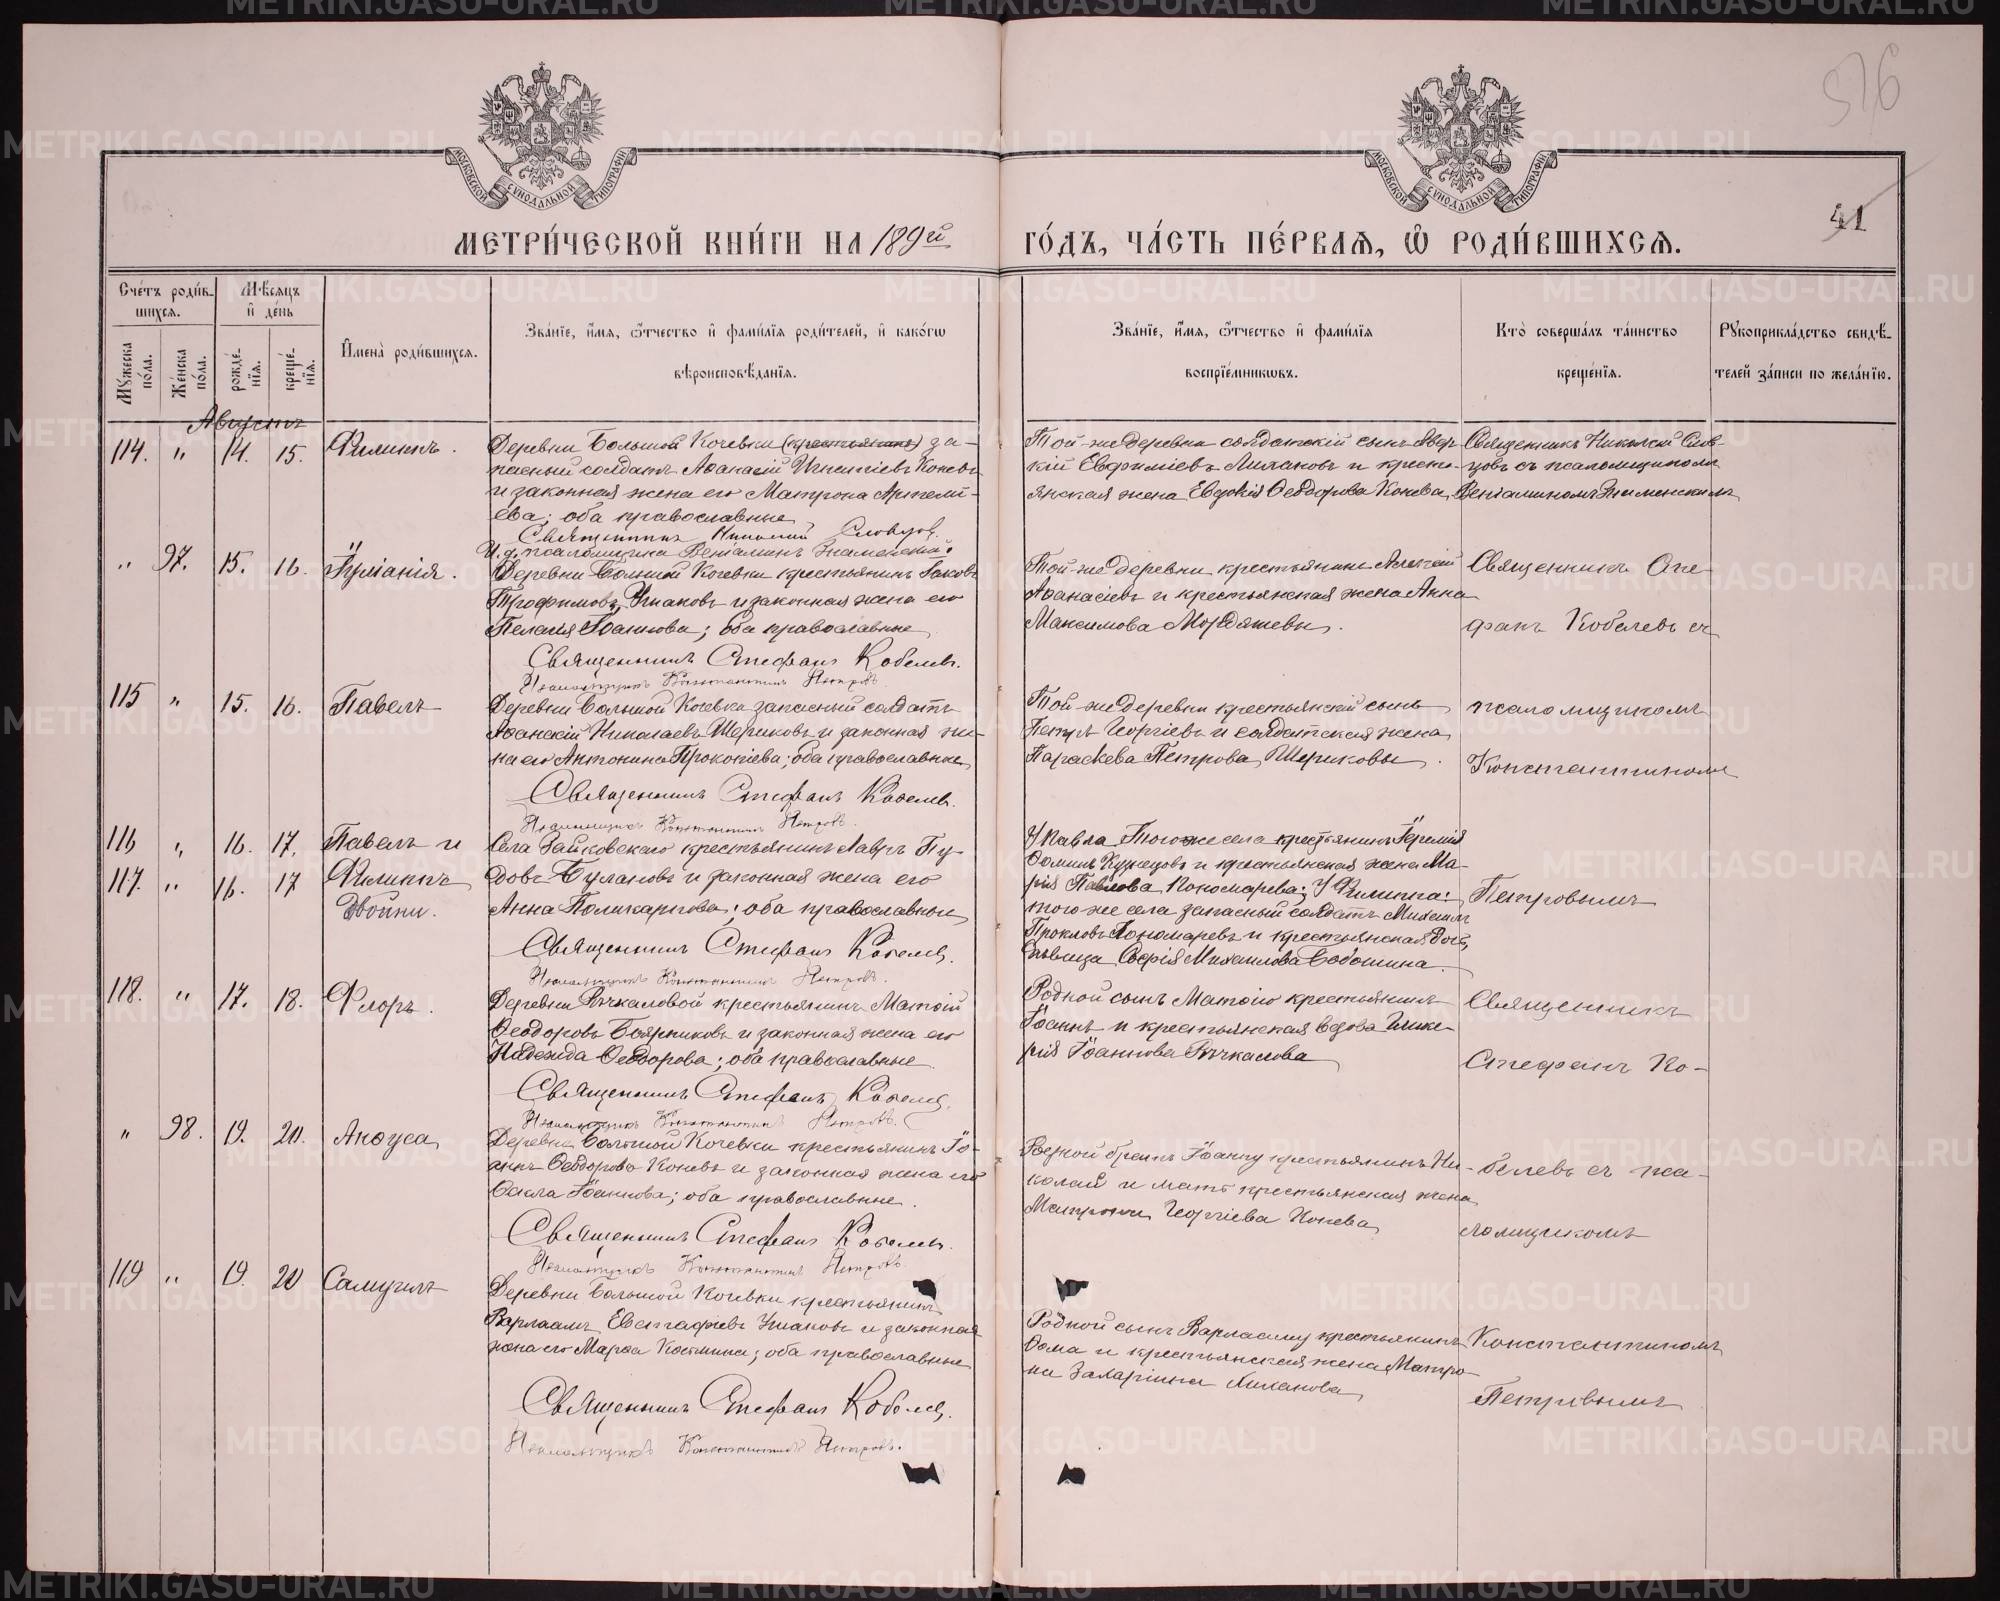 376
МОСКОВСКОЙ СУНОДАЛЬНОЙ ТИПОГРАФІИ
МОСКОВСКОЙ СУНОДАЛЬНОЙ ТИПОГРАФІИ
41
МЕТРИ́ЧЕСКОЙ КНИ́ГИ НА 189 й
ГО́ДЪ, ЧА́СТЬ ПЕ́РВАѦ, Ѡ РОДИ́ВШИХСѦ.
Сче́тъ роди́в-
шихсѧ.
Мѣ́сѧцъ
и҆ де́нь
Мꙋ́жеска по́ла.
Же́нска по́ла.
рожде́-нїѧ.
креще́-нїѧ.
И҆мена̀ роди́вшихсѧ.
Зва́нїе, и҆́мѧ, ѻ҆́тчество и҆ фами́лїѧ роди́телей, и҆ како́гѡ
вѣроисповѣ́данїѧ.
Зва́нїе, и҆́мѧ, ѻ҆́тчество и҆ фами́лїѧ
воспрїе́мникѡвъ.
Кто̀ соверша́лъ та́инство
креще́нїѧ.
Рꙋкоприкла́дство свидѣ́-
телей за́писи по жела́нїю.
Августъ
114. " 14. 15. Филиппъ.
Деревни Большой Кочевки (крестьянинъ) за-
пасный солдатъ Аѳанасій Коневъ
и законная жена его Матрона Артемі-
ева; оба православные
Священникъ Николай Словцов.
И. д. псаломщика Веніаминъ Знаменскій.
Той-же деревни солдатскій сынъ Авер-
кій Евфиміевъ Лихановъ и кресть-
янская жена Евдокія Ѳеодорова Конева
Священникъ Николай Слов-
цовъ съ псаломщикомъ
Веніаминомъ Знаменскимъ
" 97. 15. 16. Іуліанія.
Деревни Большой Кочевки крестьянинъ Іаковъ
Трофимовъ Ушаковъ и законная жена его
Пелагія Іоаннова; оба православные
Священникъ Стефанъ Кобелев.
Псаломщикъ Константинъ Петровъ.
Той-же деревни крестьянинъ Алексій
Аѳанасіевъ и крестьянская жена Анна
Максимова Мордяшевы.
Священникъ Сте-
фанъ Кобелевъ съ
115 " 15. 16. Павелъ
Деревни Большой Кочевки запасный солдатъ
Николаевъ Шериковъ и законная же-
на его Антонина Прокопіева; оба православные
Священникъ Стефанъ Кобелев.
Псаломщикъ Константинъ Петровъ.
Той-же деревни крестьянскій сынъ
Петръ Георгіевъ и солдатская жена
Параскева Петрова Шериковы.
псаломщикомъ
Константиномъ
116 " 16. 17. Павелъ и
117. " 16. 17 Филиппъ
Двойни.
Села Зайковскаго крестьянинъ Лавръ Пу-
довъ Булановъ и законная жена его
Анна Поликарпова; оба православные
Священникъ Стефанъ Кобелев.
Псаломщикъ Константинъ Петровъ.
У Павла Того же села крестьянинъ Іеремія
Ѳоминъ Кузнецовъ и крестьянская жена Ма-
рія Павлова Пономарева; У Филиппа:
того же села запасный солдатъ Михаилъ
Прокловъ Пономаревъ и крестьянская доч.
дѣвица Софія Михаилова Собошина.
Петровымъ
118. " 17. 18. Флоръ.
Деревни Рычкаловой крестьянинъ Матѳій
Ѳеодоровъ Боярниковъ и законная жена его
Надежда Ѳеодорова; оба православные.
Священникъ Стефанъ Кобелев.
Псаломщикъ Константинъ Петровъ.
Родной сынъ Матѳію крестьянинъ
Іоаннъ и крестьянская вдова Глике-
рія Іоаннова Рычкалова
Священникъ
Стефанъ Ко-
" 98. 19. 20. Анѳуса
Деревни Большой Кочевки крестьянинъ Іо-
аннъ Ѳеодоровъ Коневъ и законная жена его
Ѳекла Іоаннова; оба православные.
Священникъ Стефанъ Кобелев.
Псаломщикъ Константинъ Петровъ.
Родной братъ Іоанну крестьянинъ Ни-
колай и мать крестьянская жена
Матрона Георгіева Конева
белевъ съ пса-
ломщикомъ
119 " 19. 20 Самуилъ
Деревни Большой Кочевки крестьянинъ
Варлаамъ Евстафіевъ Ушаковъ и законная
жена его Марѳа Космина; оба православные
Священникъ Стефанъ Кобелев.
Псаломщикъ Константинъ Петровъ.
Родной сынъ Варлааму крестьянинъ
Ѳома и крестьянская жена Матро-
на Захаріина Лиханова
Константиномъ
Петровымъ
METRIKI.GASO-URAL.RU